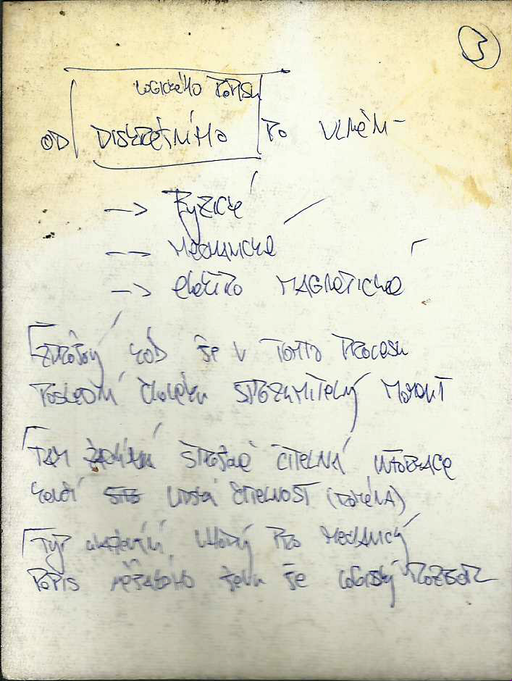 3
LOGICKÉHO POPISU
OD DISKRÉTNÍHO PO VLNĚNÍ
→ FYZICKÉ
→ MECHANICKÉ
→ ELEKTRO MAGNETICKÉ
ZDROJOVÝ KÓD JE V TOMTO PROCESU
POSLEDNÍ ČLOVĚKU SROZUMITELNÝ MOMENT
TAM STROJNĚ ČITELNÁ INFORMACE
KONČÍ LIDSKÁ ČITELNOST
TYP VHODNÝ PRO MECHANICKÝ
POPIS JEVU JE LOGICKÝ ROZBOR